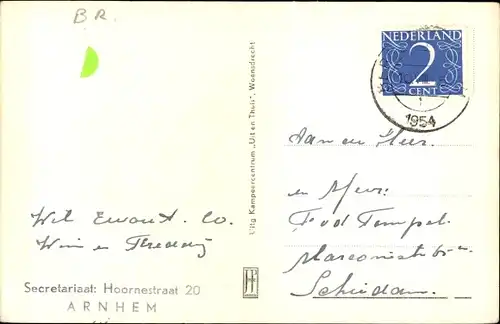 B R.
NEDERLAND
2
CENT
1954
Uitg. Kampeercentrum „Uit en Thuis”, Woensdrecht
Aan den Heer.
en Mevr.
v d Tempel.
Marconistr
Schiedam.
Wim en
Secretariaat: Hoornestraat 20
ARNHEM